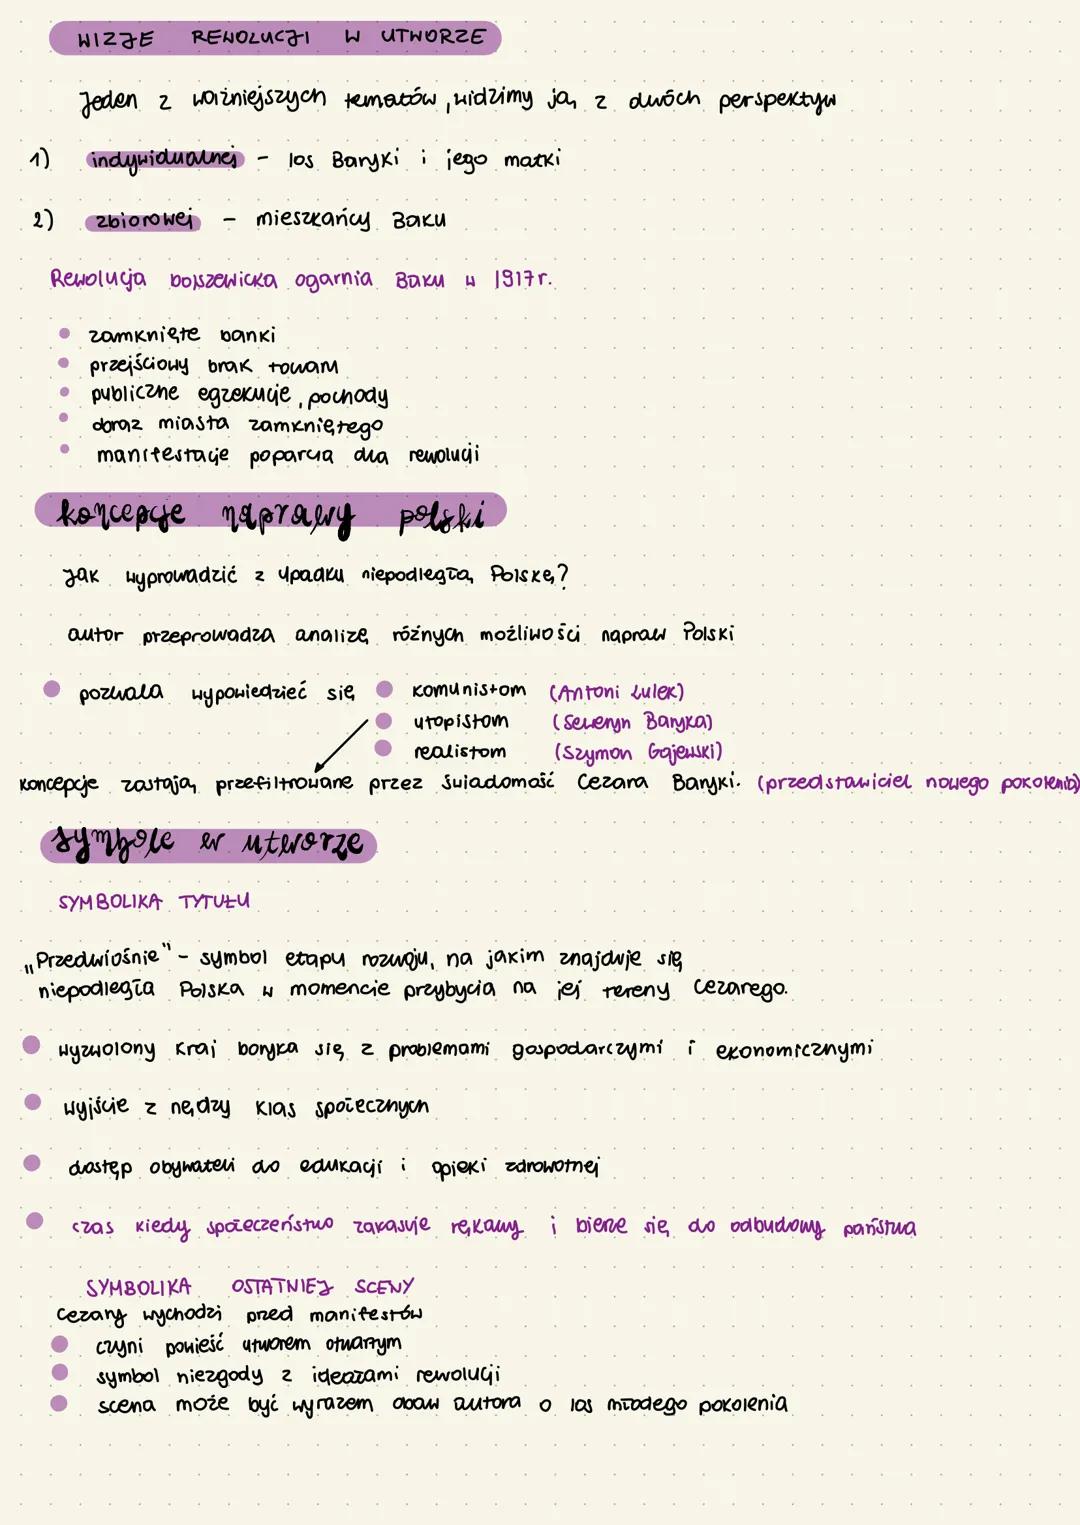 WIZJE REWOLUCJI W UTWORZE
Jeden z ważniejszych tematów, widzimy ją z dwóch perspektyw
1) indywidualnej - los Baryki i jego matki
2) zbiorowej - mieszkańcy Baku
Rewolucja bolszewicka ogarnia Baku w 1917r.
zamknięte banki
przejściowy brak towaru
publiczne egzekucje, pochody
obraz miasta zamkniętego
manifestacje poparcia dla rewolucji
koncepcje naprawy polski
Jak wyprowadzić z upadku niepodległą Polskę?
autor przeprowadza analizę różnych możliwości napraw Polski
pozwala wypowiedzieć się komunistom (Antoni Lulek)
utopistom (Seweryn Baryka)
realistom (Szymon Gajewski)
koncepcje zostają przefiltrowane przez świadomość Cezara Baryki. (przedstawiciel nowego pokolenia)
symbole w utworze
SYMBOLIKA TYTUŁU
„Przedwiośnie" - symbol etapu rozwoju, na jakim znajduje się
niepodległa Polska w momencie przybycia na jej tereny Cezarego.
wyzwolony kraj boryka się z problemami gospodarczymi i ekonomicznymi
wyjście z nędzy klas społecznych
dostęp obywateli do edukacji i opieki zdrowotnej
czas kiedy społeczeństwo zakasuje rękawy i bierze się do odbudowy państwa
SYMBOLIKA OSTATNIEJ SCENY
Cezary wychodzi przed manifestów
czyni powieść utworem otwartym
symbol niezgody z ideałami rewolucji
scena może być wyrazem obaw autora o los młodego pokolenia